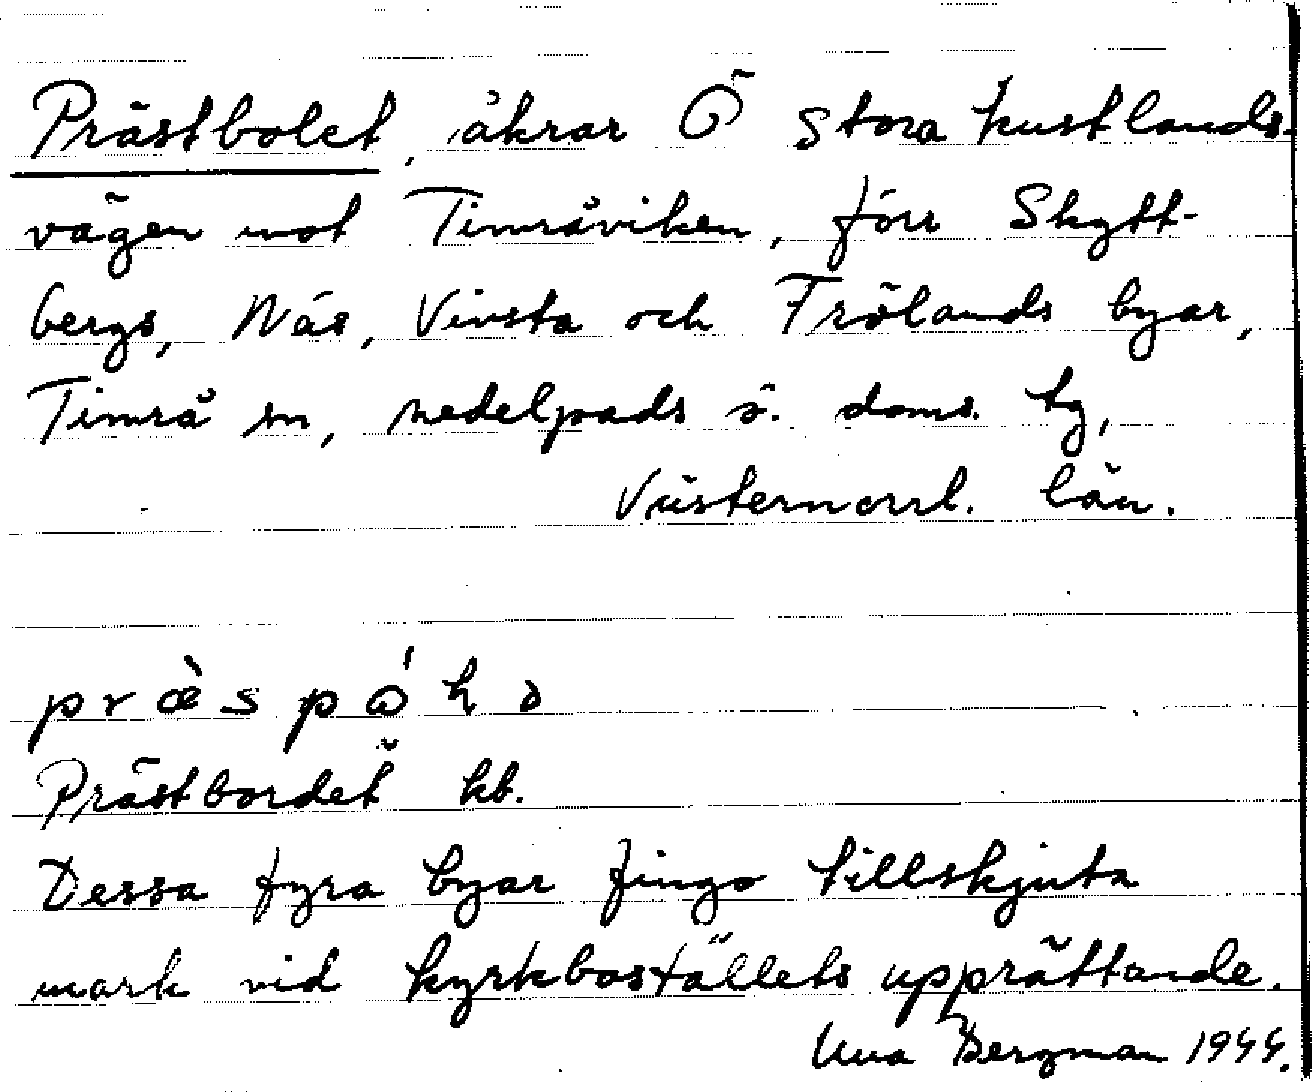 Prästbolet, åkrar Ö Stora kustlands-
vägen mot Timråviken, förr Skytt-
bergs, Näs, Vivsta och Frölands byar,
Timrå sn, Medelpads ö. doms. tg,
Västernorrl. län.
præ̀spǻɦə
Prästbordet kb.
Dessa fyra byar fingo tillskjuta
mark vid kyrkboställets upprättande.
Una Bergman 1944.